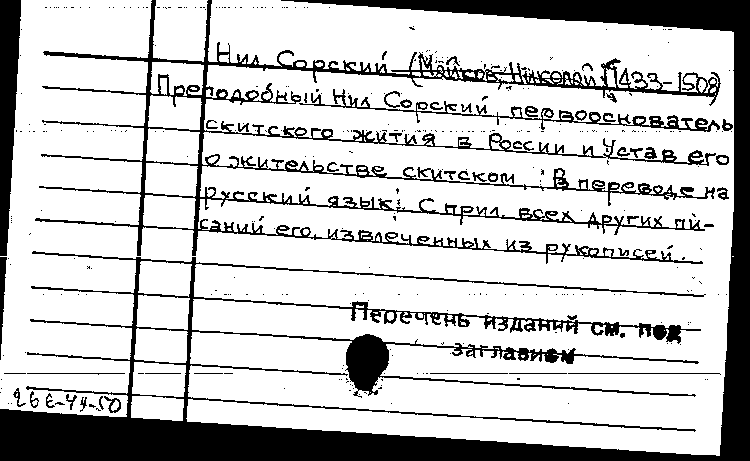 Нил, Сорский (Майков, Николай) (1433-1508)
Преподобный Нил Сорский, первооснователь
скитского жития в России и Устав его
о жительстве скитском. [В переводе на
русский язык]. С прил. всех других пи-
саний его, извлеченных из рукописей.
Перечень изданий см. под
заглавием